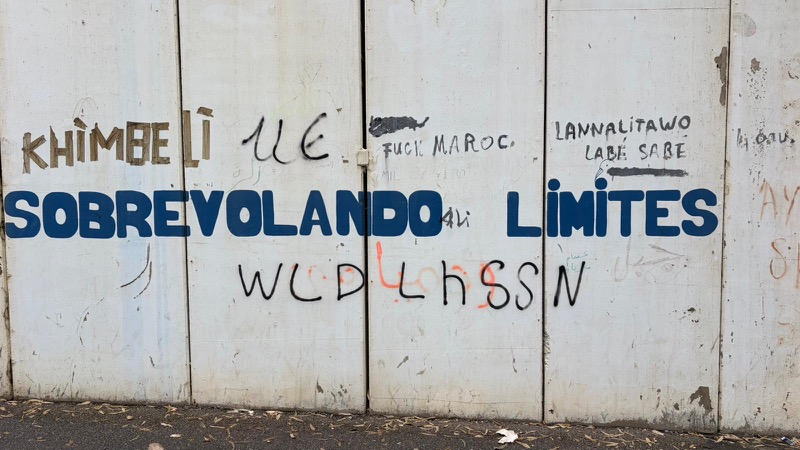 KHIMBELI
FUCK MAROC.
LANNALITAWO
LABÉ SABE
SOBREVOLANDO LIMITES
ALi
WLD LhSSN